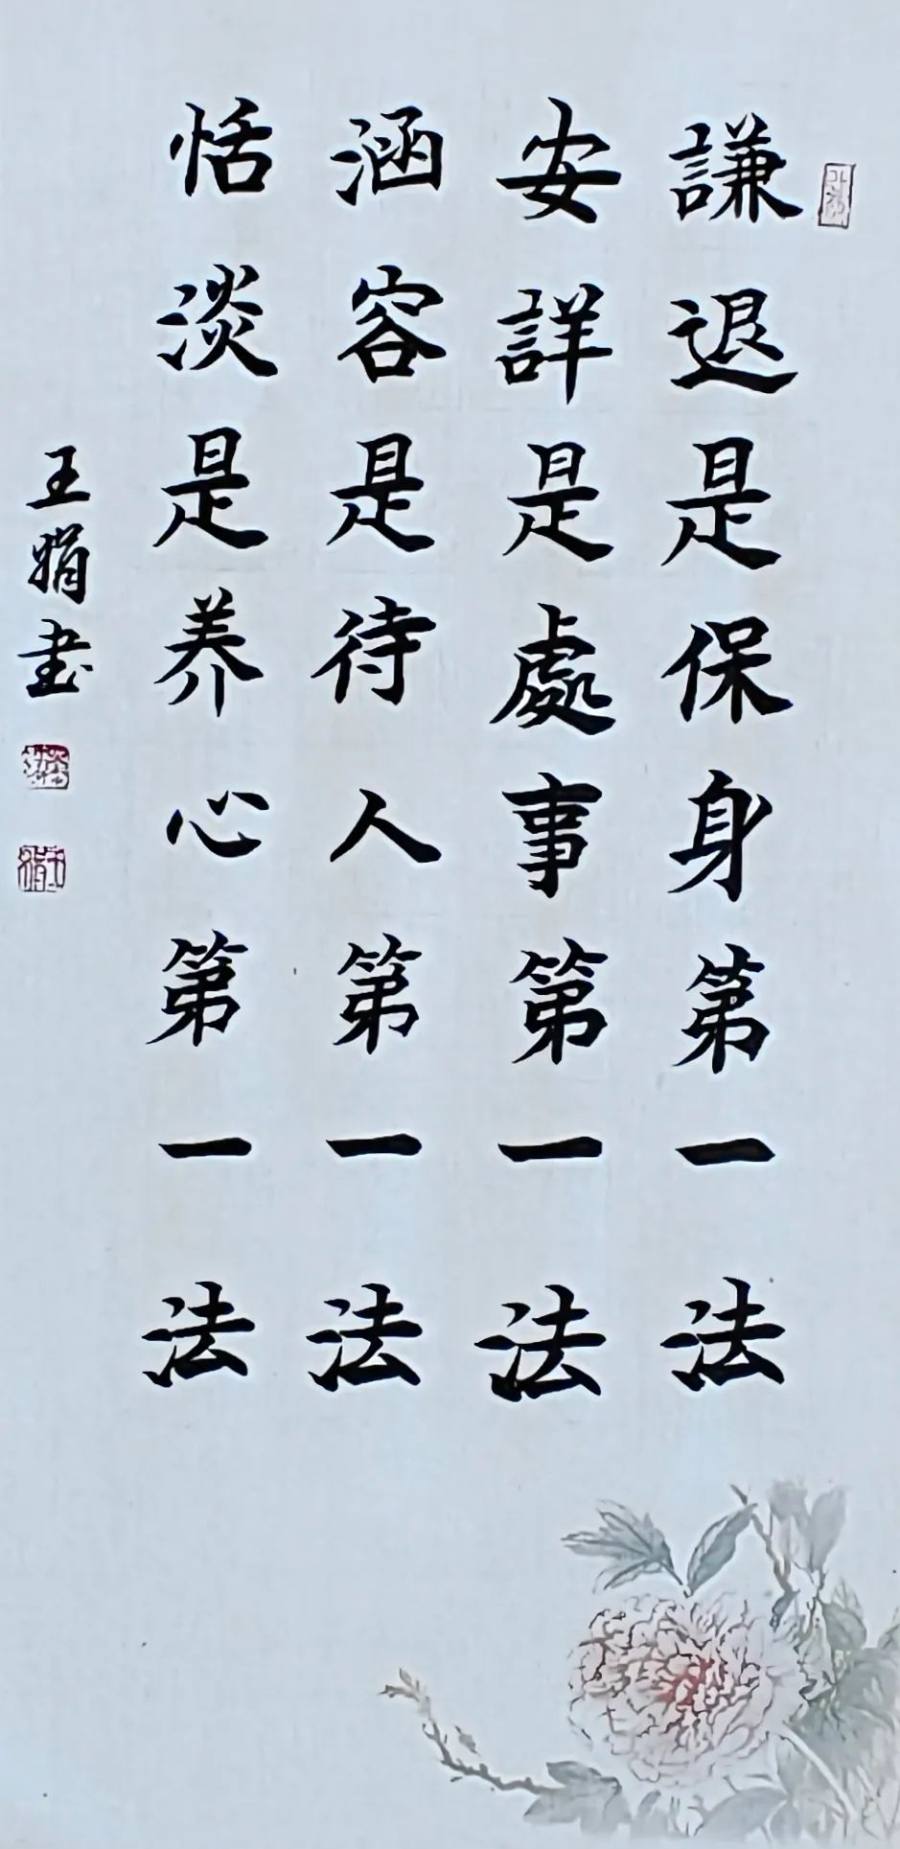 謙退是保身第一法
安詳是處事第一法
涵容是待人第一法
恬淡是养心第一法
王娟書